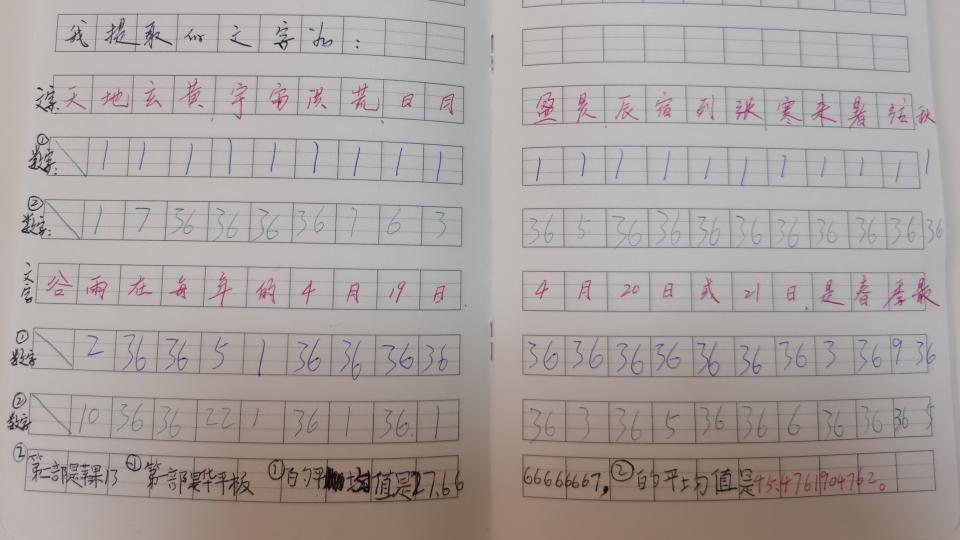 我提取的文字如:
文字:天地玄黄,宇宙洪荒,日月
①数字:1 1 1 1 1 1 1 1 1
②数字:1 7 36 36 36 36 7 6 3
文字谷雨在每年的4月19日.
①数字 2 36 36 5 1 36 36 36 36
②数字 10 36 36 22 1 36 1 36. 1
②第二部是苹果13 ①第一部是华平板 ①的平均值是27.66
盈昃辰宿列张寒来暑往秋
1 1 1 1 1 1 1 1 1 1 1
36 5 36 36 36 36 36 36 36 36 36
4月20日或21日.是春季最
36 36 36 36 36 36 36 3 36 9 36
36 3 36 5 36 36 6 36 36 36 5
66666667,②的平均值是45.4761904762。